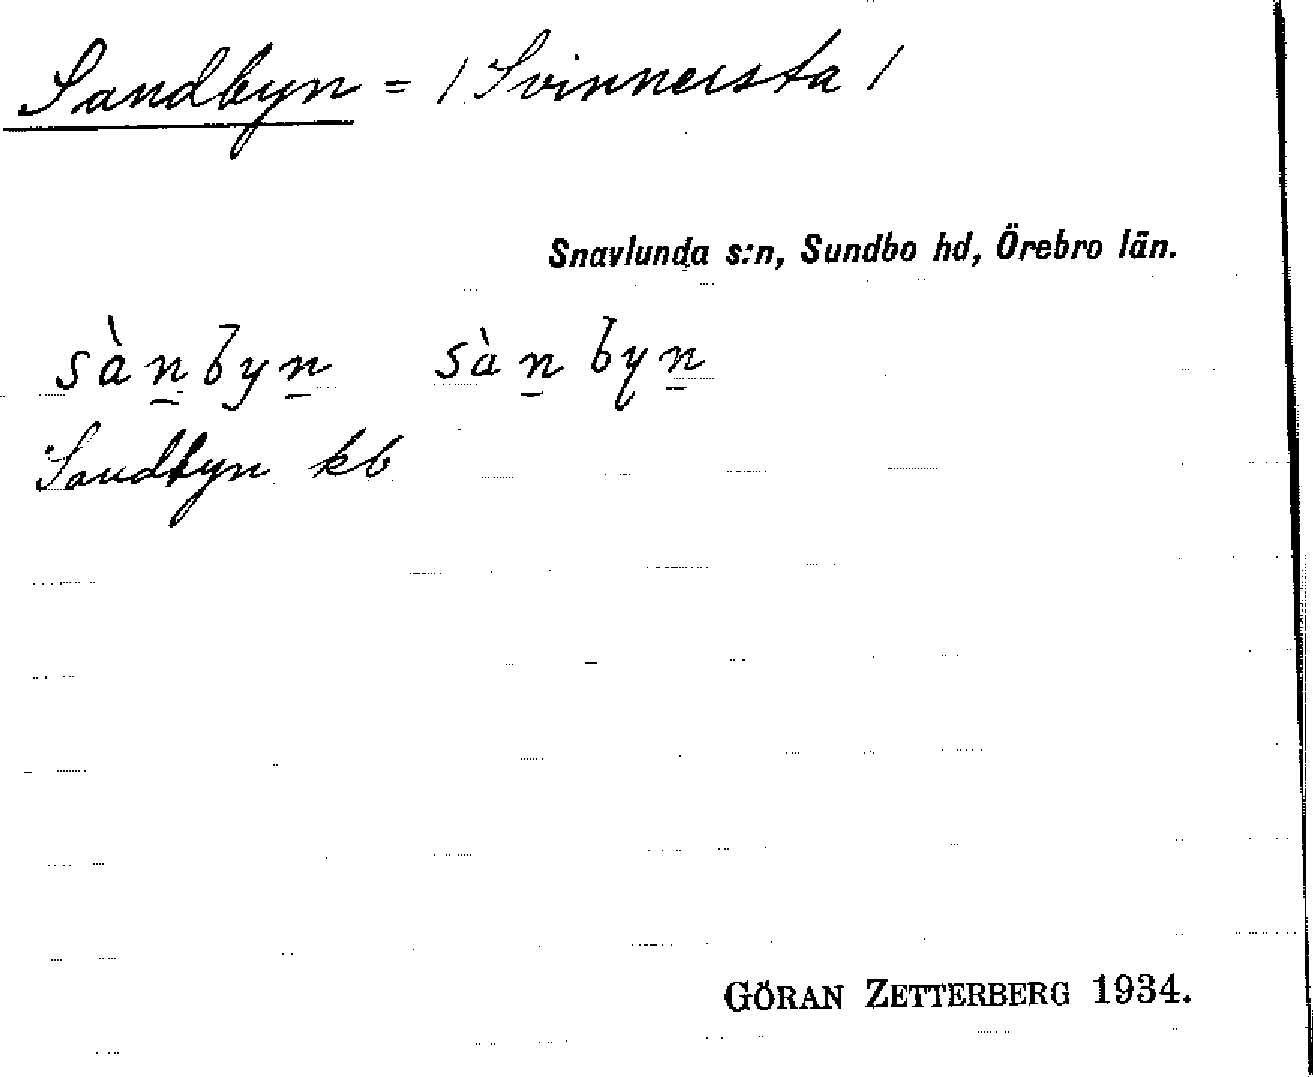 Sandbyn = / Svinnersta /
Snavlunda s:n, Sundbo hd, Örebro län.
sàn̠byn̠ sàn̠byn̠
Sandbyn kb
GÖRAN ZETTERBERG 1934.